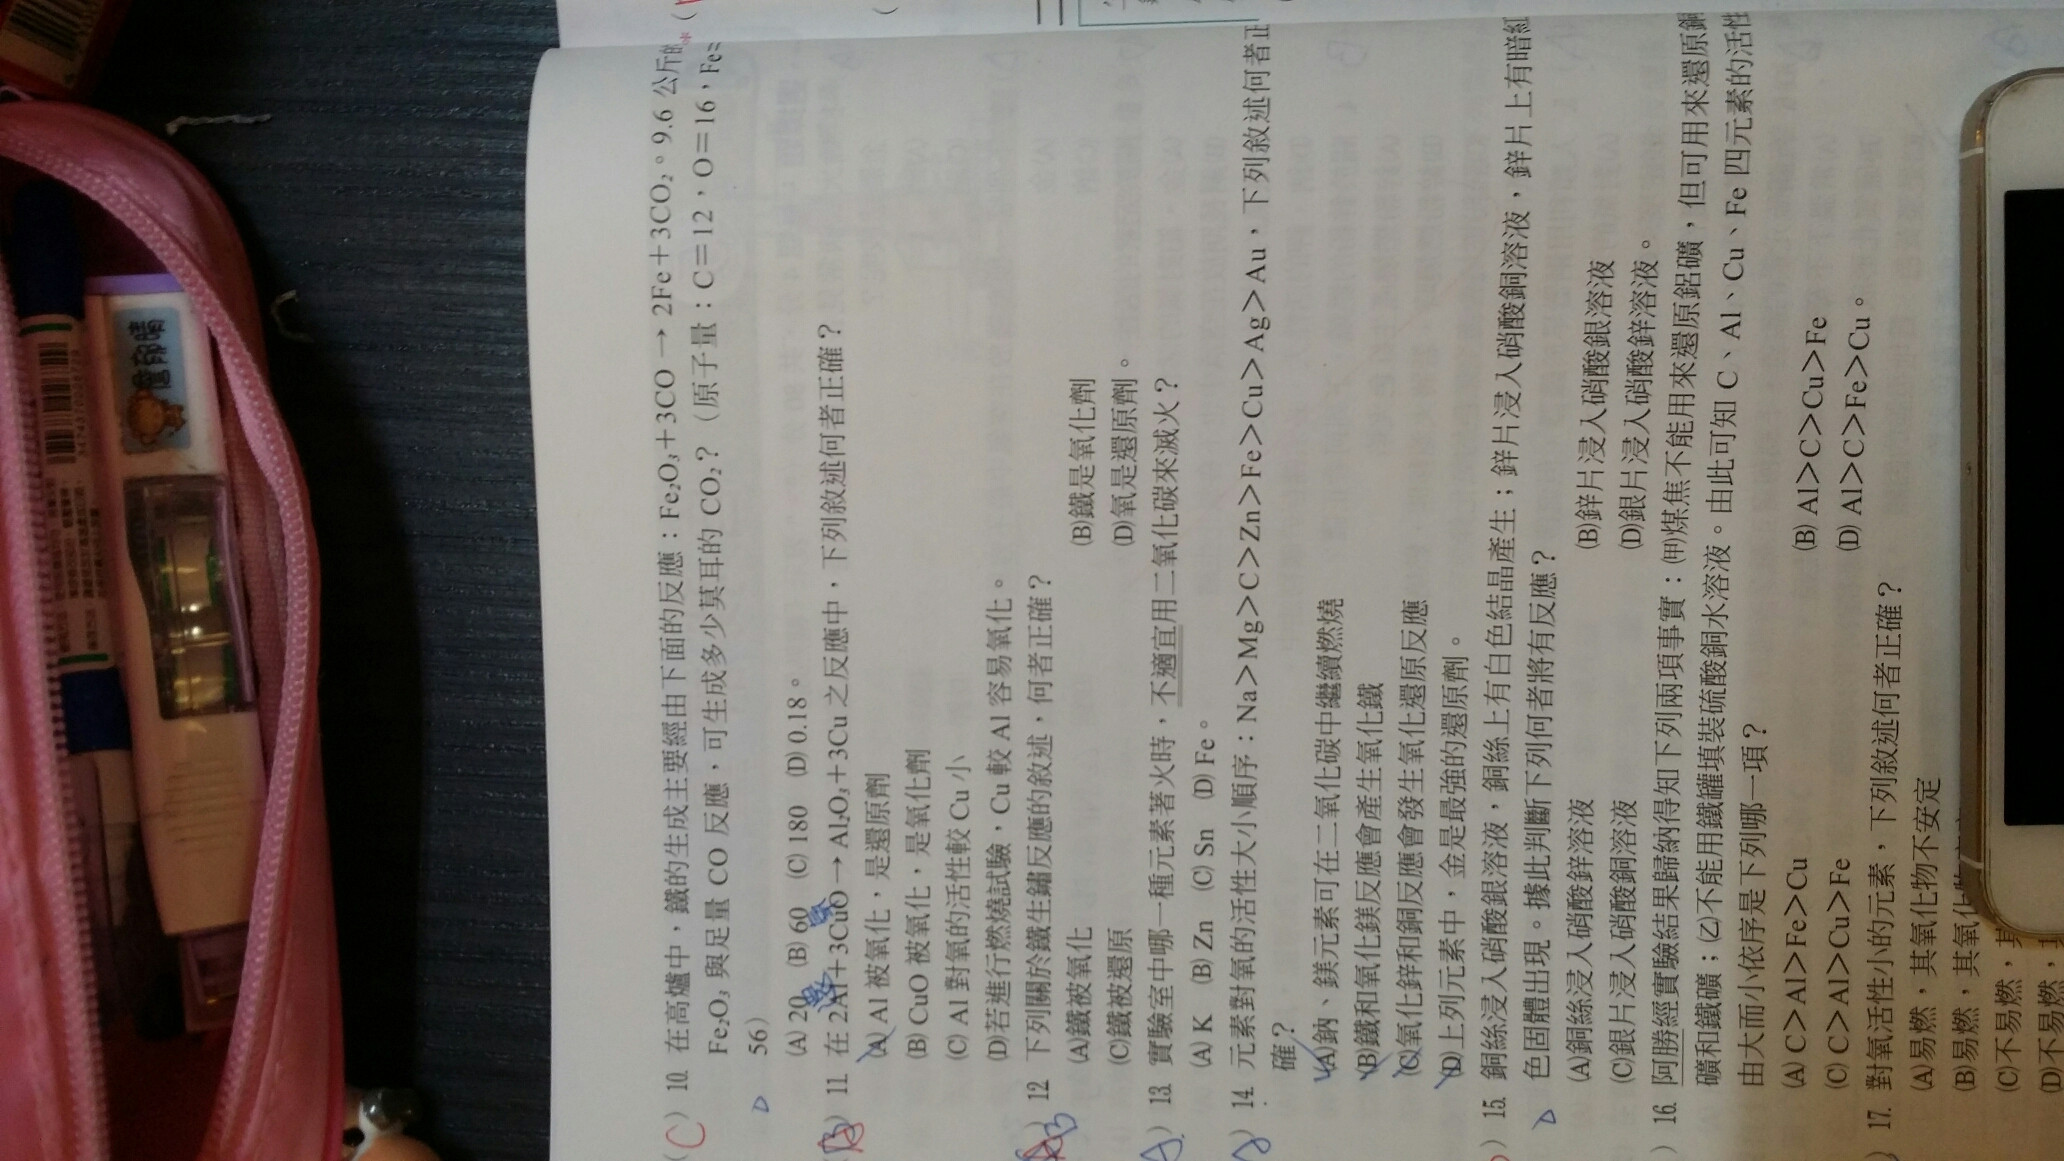 (C) 10. 在高爐中，鐵的生成主要經由下面的反應：Fe₂O₃＋3CO → 2Fe＋3CO₂。9.6 公斤的
Fe₂O₃ 與足量 CO 反應，可生成多少莫耳的 CO₂？（原子量：C＝12，O＝16，Fe＝
56）
(A) 20 (B) 60 (C) 180 (D) 0.18。
11. 在 2Al＋3CuO → Al₂O₃＋3Cu 之反應中，下列敘述何者正確？
(A) Al 被氧化，是還原劑
(B) CuO 被氧化，是氧化劑
(C) Al 對氧的活性較 Cu 小
(D)若進行燃燒試驗，Cu 較 Al 容易氧化。
12. 下列關於鐵生鏽反應的敘述，何者正確？
(A)鐵被氧化 (B)鐵是氧化劑
(C)鐵被還原 (D)氧是還原劑。
13. 實驗室中哪一種元素著火時，不適宜用二氧化碳來滅火？
(A) K (B) Zn (C) Sn (D) Fe。
14. 元素對氧的活性大小順序：Na＞Mg＞C＞Zn＞Fe＞Cu＞Ag＞Au，下列敘述何者正
確？
(A)鈉、鎂元素可在二氧化碳中繼續燃燒
(B)鐵和氧化鎂反應會產生氧化鐵
(C)氧化鋅和銅反應會發生氧化還原反應
(D)上列元素中，金是最強的還原劑。
15. 銅絲浸入硝酸銀溶液，銅絲上有白色結晶產生；鋅片浸入硝酸銅溶液，鋅片上有暗紅
色固體出現。據此判斷下列何者將有反應？
(A)銅絲浸入硝酸鋅溶液 (B)鋅片浸入硝酸銀溶液
(C)銀片浸入硝酸銅溶液 (D)銀片浸入硝酸鋅溶液。
16. 阿勝經實驗結果歸納得知下列兩項事實：(甲)煤焦不能用來還原鋁礦，但可用來還原銅
礦和鐵礦；(乙)不能用鐵罐填裝硫酸銅水溶液。由此可知 C、Al、Cu、Fe 四元素的活性
由大而小依序是下列哪一項？
(A) C＞Al＞Fe＞Cu (B) Al＞C＞Cu＞Fe
(C) C＞Al＞Cu＞Fe (D) Al＞C＞Fe＞Cu。
17. 對氧活性小的元素，下列敘述何者正確？
(A)易燃，其氧化物不安定
(B)易燃，其氧化物
(C)不易燃，其
(D)不易燃，